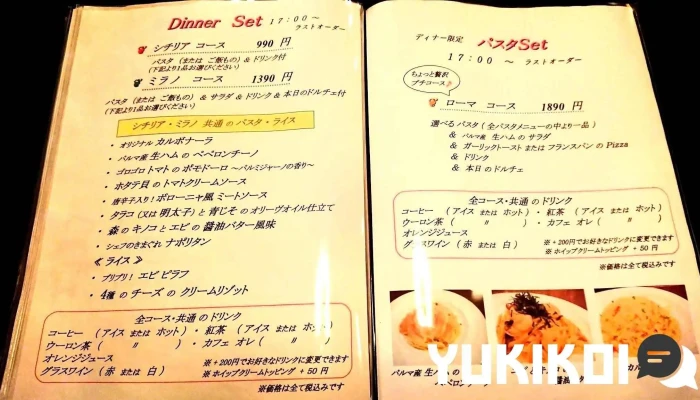 Dinner Set 17:00～
ラストオーダー
シチリア コース 990 円
パスタ (または ご飯もの) & ドリンク付
(下記より1品お選びください)
ミラノ コース 1390 円
パスタ (または ご飯もの) & サラダ & ドリンク & 本日のドルチェ付
(下記より1品お選びください)
シチリア・ミラノ 共通 の パスタ・ライス
・オリジナル カルボナーラ
・パルマ産 生ハム の ペペロンチーノ
・ゴロゴロトマト の ポモドーロ ～パルミジャーノの香り～
・ホタテ貝 の トマトクリームソース
・唐辛子入り! ボローニャ風 ミートソース
・タラコ (又は 明太子) と 青じそ の オリーヴオイル仕立て
・森 の キノコ と エビ の 醤油バター風味
・シェフのきまぐれ ナポリタン
≪ ライス ≫
・プリプリ! エビ ピラフ
・4種 の チーズ の クリームリゾット
全コース・共通 の ドリンク
コーヒー (アイス または ホット) ・紅茶 (アイス または ホット)
ウーロン茶 ( 〃 ) ・カフェ オレ ( 〃 )
オレンジジュース
グラスワイン (赤 または 白)
※ +200円でお好きなドリンクに変更できます
※ ホイップクリームトッピング + 50 円
※価格は全て税込みです
ディナー限定 パスタSet
17:00 ～ ラストオーダー
ちょっと贅沢
プチコース♪
ローマ コース 1890 円
選べる パスタ ( 全パスタメニューの中より一品 )
& パルマ産 生ハム の サラダ
& ガーリックトースト または フランスパン の Pizza
& ドリンク
& 本日 の ドルチェ
全コース・共通 の ドリンク
コーヒー (アイス または ホット) ・紅茶 (アイス または ホット)
ウーロン茶 ( 〃 ) ・カフェ オレ ( 〃 )
オレンジジュース
グラスワイン (赤 または 白)
※ +200円でお好きなドリンクに変更できます
※ ホイップクリームトッピング + 50
※価格は全て税込みです
パルマ産 生ハム の
ペペロンチーノ
YUKIKOI